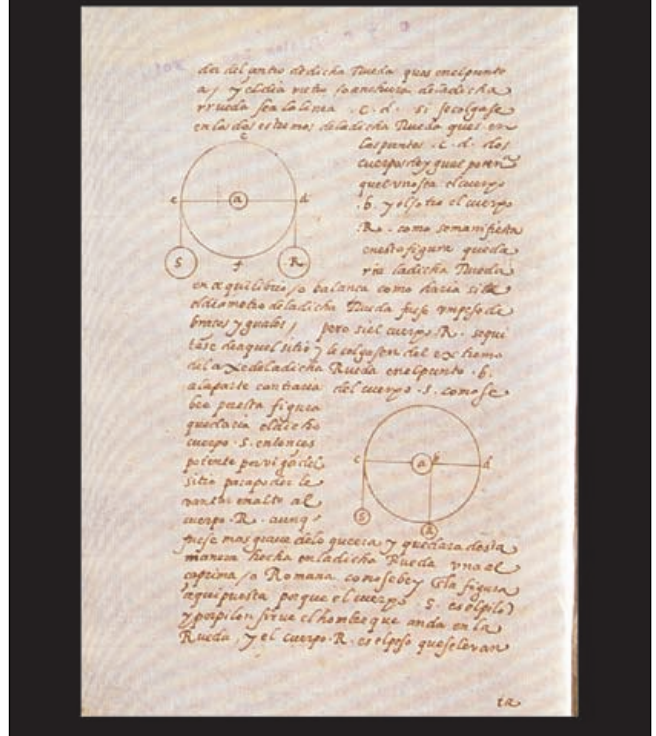 dia del çentro dedicha Rueda ques enelpunto
a, y el dia metro / o anchura deladicha
rrueda sea la linea . c . d . si se colgase
en los dos estremos deladicha Rueda ques en
e
los puntos . c . d . dos
cuerpos de y gual poten
quel vno sea el cuerpo
.b. y el otro el cuerpo
.R. como se manifiesta
c a d
en esta figura queda
S f R
ria ladicha Rueda
en equilibrio / o balança como haria si el
eldiametro deladicha Rueda fuese vn peso de
braços yguales / pero si el cuerpo .R. se qui
tase deaquel sitio y le colgasen del extremo
del axe deladicha Rueda enelpunto .b.
alaparte contraria del cuerpo .S. como se
bee puesta figura
quedaria eldicho
cuerpo .S. entonces
c a b d
potente por vigor del
sitio para poder le
vantar enalto al
S
cuerpo .R. aunq
R
fuese mas graue delo que era y quedara desta
manera hecha enladicha Rueda vna el
caprima / o Romana como se bee y la figura
aqui puesta porque el cuerpo .S. es el pilo
y por pilon sirue el hombre que anda en la
Rueda, y el cuerpo .R. es el peso que se leuan
ta